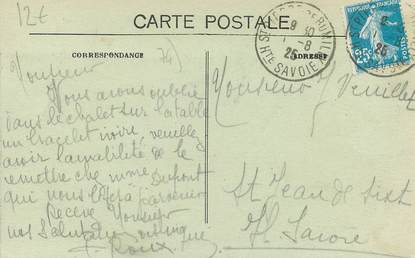 12€
CARTE POSTALE
CORRESPONDANCE
ADRESSE
(74)
Monsieur
Nous avons oublié
dans le chalet sur la table
un bracelet ivoire, veuillez
avoir l'amabilité de le
remettre che mme Dupont
qui nous le fera parvenir
Recevez Monsieur
nos Salutations
Roux
Monsieur J Veuillet
St Jean de Sixt
Hte Savoie
Hte SAVOIE
25
25c